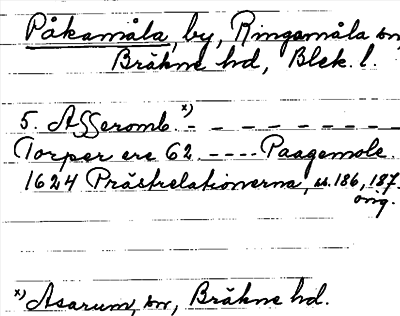 Påkamåla, by, Ringamåla sn,
Bräkne hd, Blek. l.
5. Asseromb. x) - - - - - - - - -
Torper ere 62. ---- Paagemole.
1624 Prästrelationerna, s. 186, 187.
orig.
x) Asarum, sn, Bräkne hd.